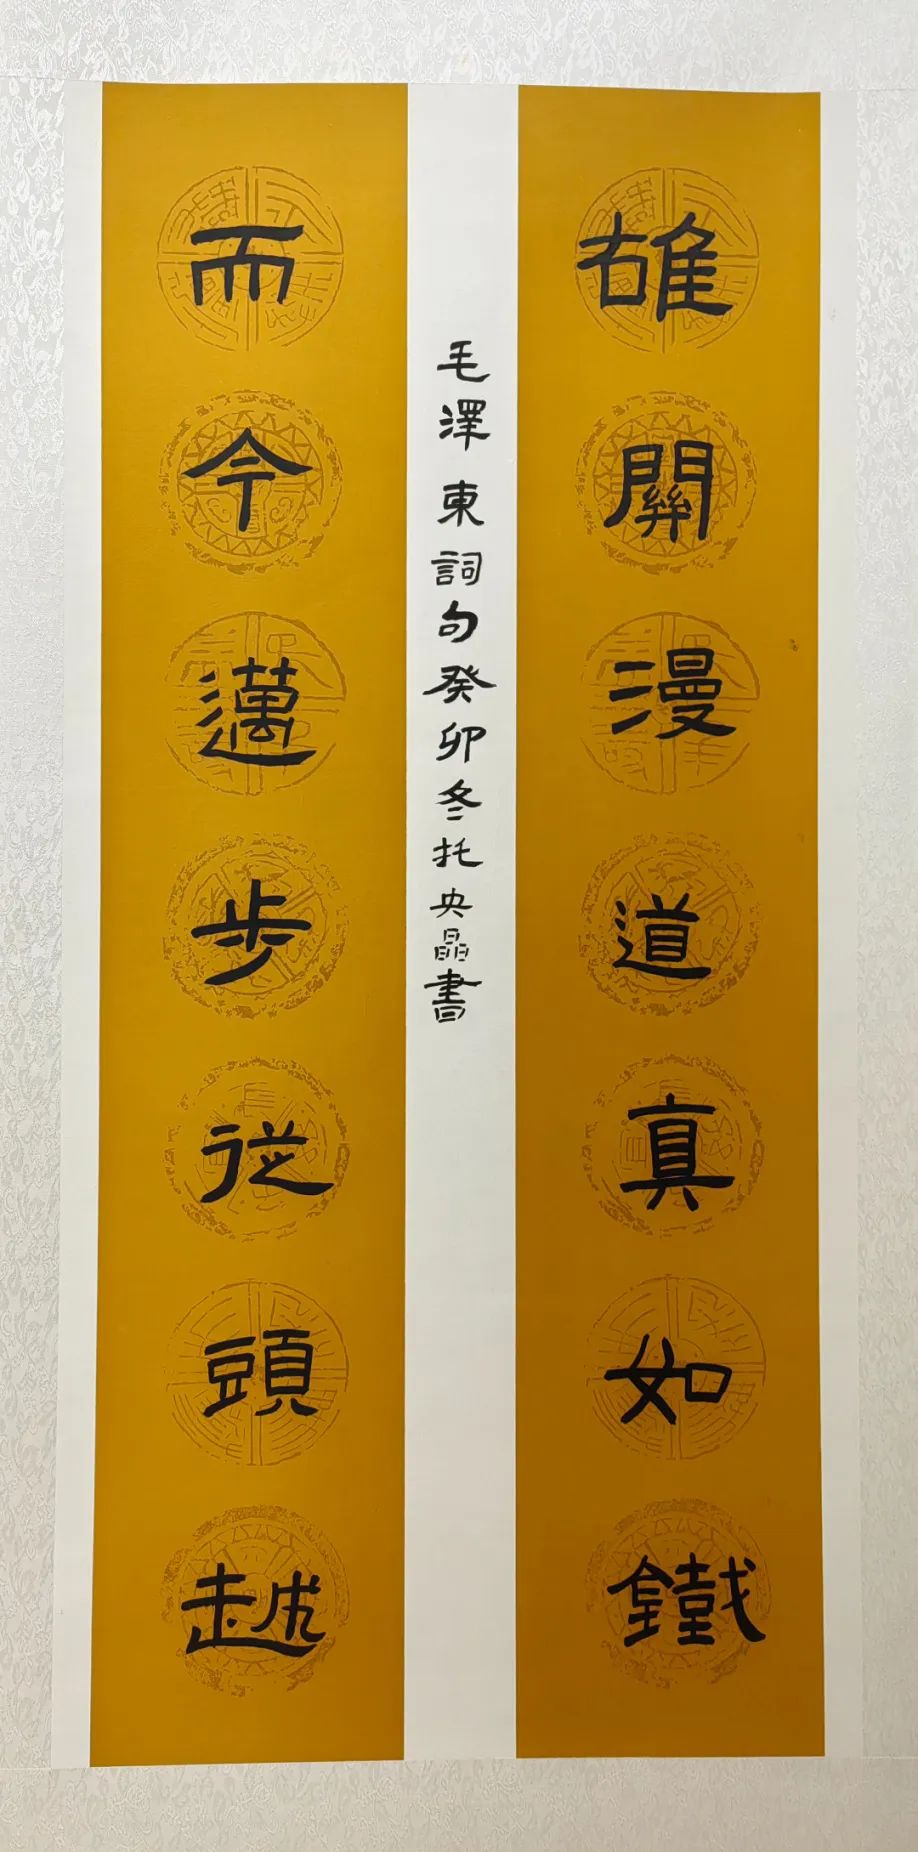 雄關漫道真如鐵
而今邁步從頭越
毛澤東詞句癸卯冬托央晶書